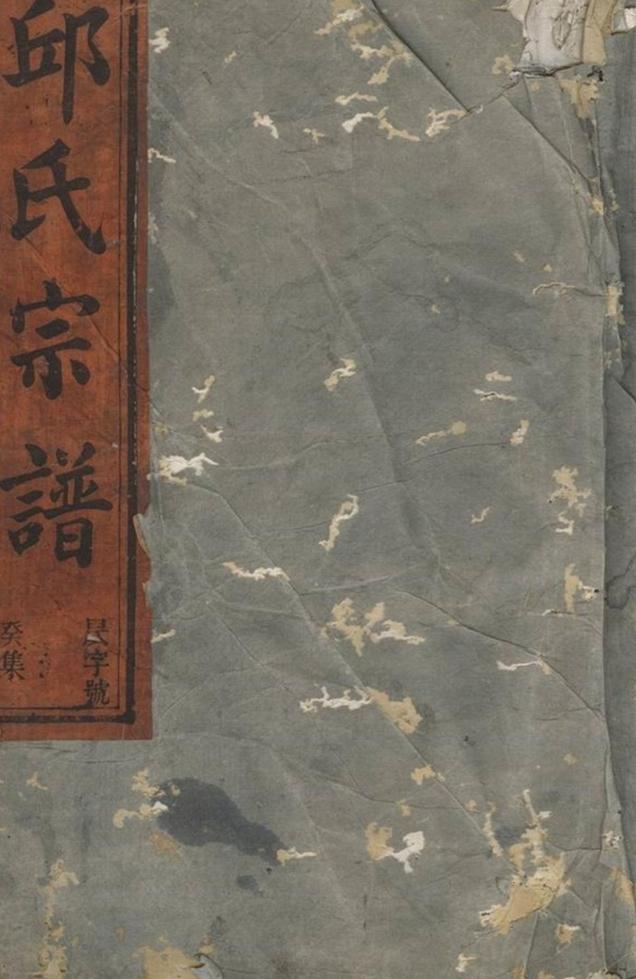 邱氏宗譜
民字號
癸集